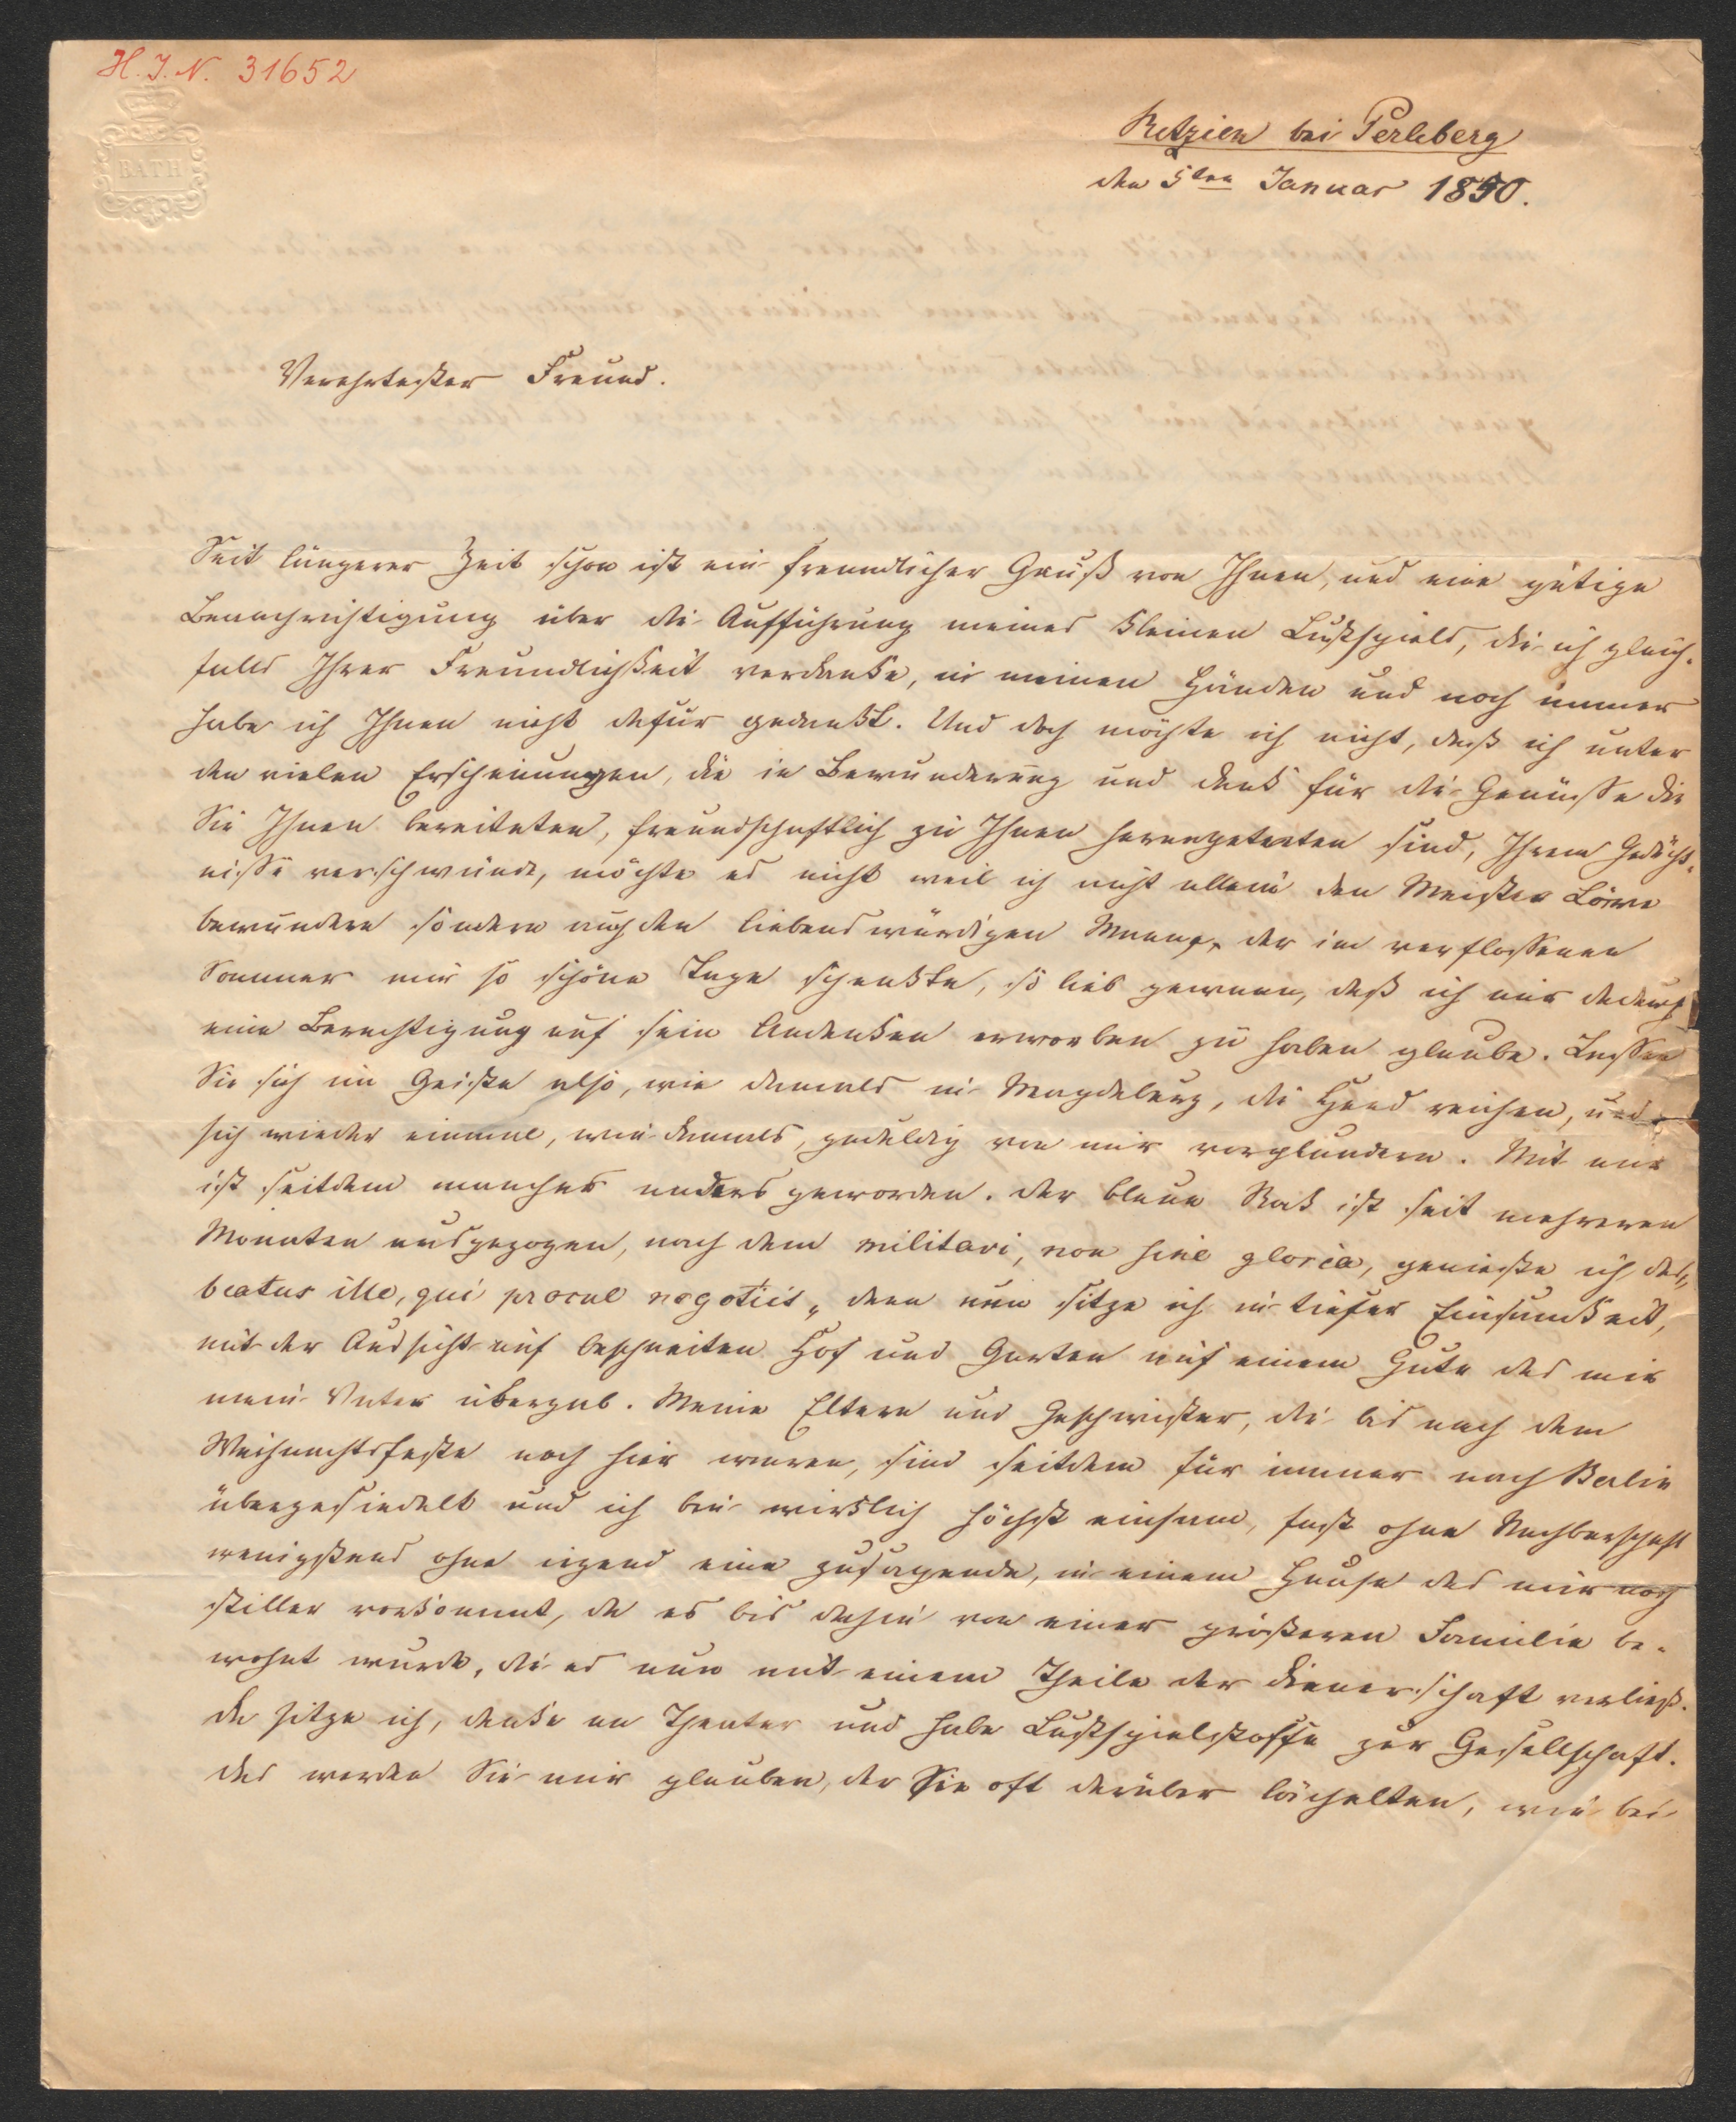 H. I. N. 31652
BATH
Retzien bei Perleberg
den 5ten Januar 1850.
Verehrtester Freund.
Seit längerer Zeit schon ist ein freundlicher Gruß von Ihnen, und eine gütige
Benachrichtigung über die Aufführung meines kleinen Lustspiels, die ich gleich-
falls Ihrer Freundlichkeit verdanke, in meinen Händen und noch immer
habe ich Ihnen nicht dafür gedankt. Und doch möchte ich nicht, daß ich unter
den vielen Erscheinungen, die in Bewunderung und Dank für die Genüsse die
Sie Ihnen bereiteten, freundschaftlich zu Ihnen herangetreten sind, Ihrem Gedächt-
nisse verschwände, möchte es nicht weil ich nicht allein den Meister Löwe
bewundere sondern auch den liebenswürdigen Mann, der im verflossenen
Sommer mir so schöne Tage schenkte, so lieb gewann, daß ich mir dadurch
eine Berechtigung auf sein Andenken erworben zu haben glaube. Lassen
Sie sich im Geiste also, wie damals in Magdeburg, die Hand reichen, und
sich wieder einmal, wie damals, geduldig von mir vorplaudern. Mit mir
ist seitdem manches anders geworden. Der blaue Rock ist seit mehreren
Monaten ausgezogen, nach dem militari, non sine gloria, genieße ich das „
beatus ille, qui procul negotiis „ denn nun sitze ich in tiefer Einsamkeit,
mit der Aussicht auf beschneiten Hof und Garten auf einem Gute das mir
mein Vater übergab. Meine Eltern und Geschwister, die bis nach dem
Weihnachtsfeste noch hier waren, sind seitdem für immer nach Berlin
übergesiedelt und ich bin wirklich höchst einsam, fast ohne Nachbarschaft
wenigstens ohne irgend eine zusagende, in einem Hause das mir noch
stiller vorkommt, da es bis dahin von einer größeren Familie be-
wohnt wurde, die es nun mit einem Theile der Dienerschaft verließ.
Da sitze ich, denke an Theater und habe Lustspielstoffe zur Gesellschaft.
Das werden Sie mir glauben, der Sie oft darüber lächelten, wie bei